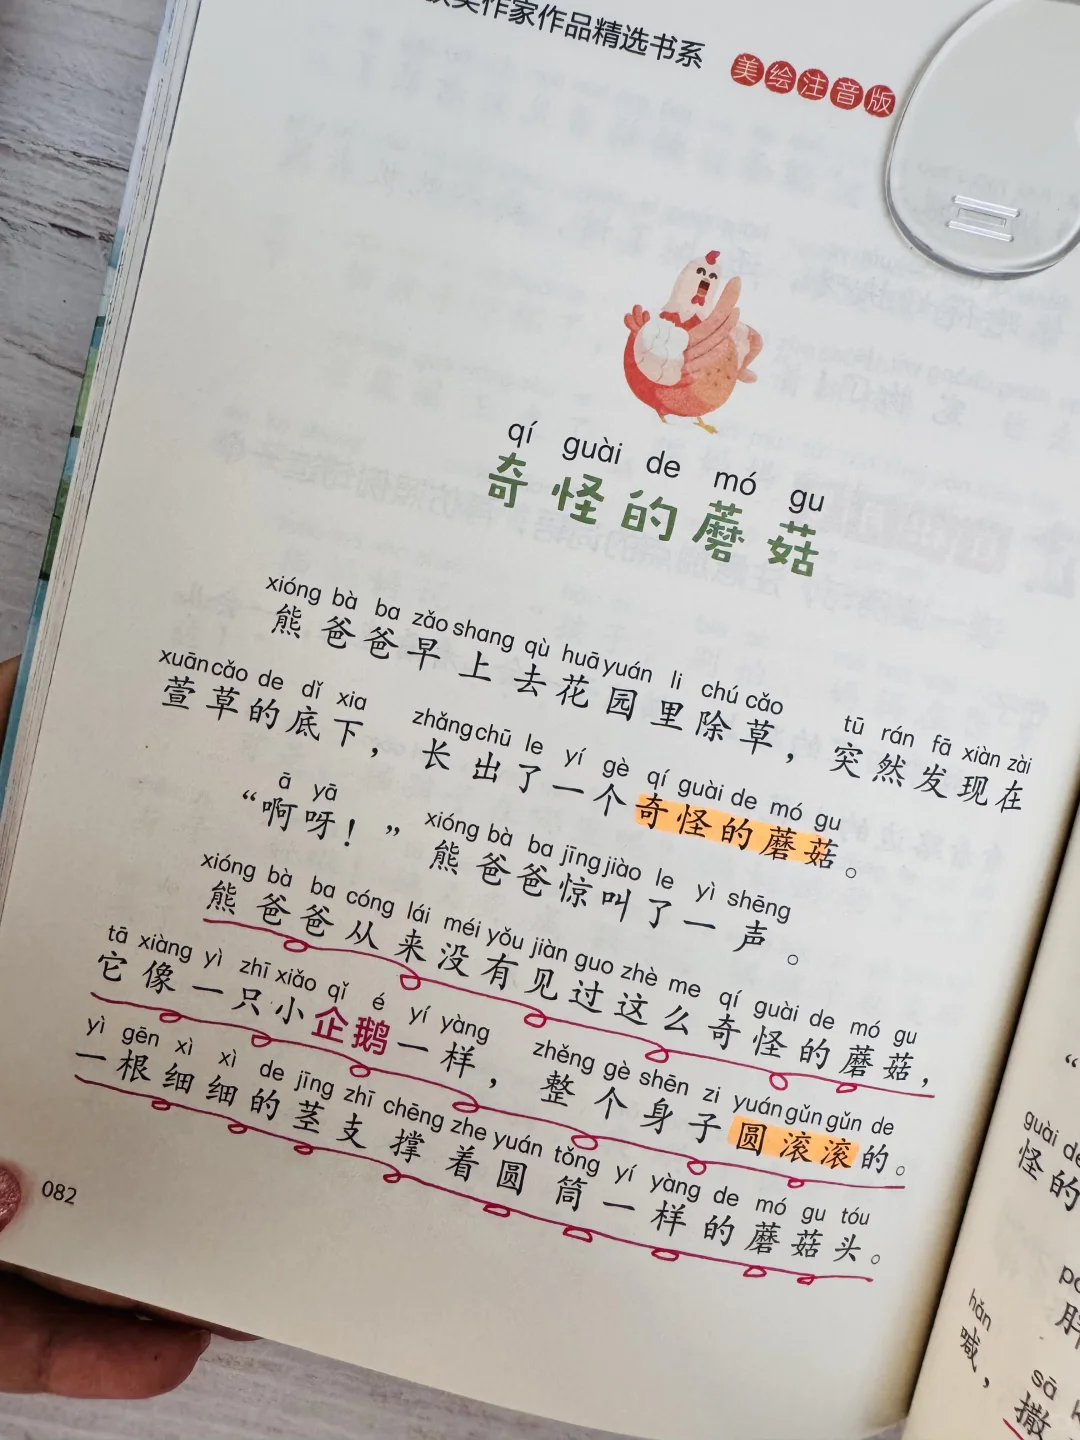 作家作品精选书系
美绘注音版
qí guài de mó gu
奇怪的蘑菇
xióng bà ba zǎo shang qù huā yuán li chú cǎo tū rán fā xiàn zài
熊爸爸早上去花园里除草，突然发现在
xuān cǎo de dǐ xia zhǎng chū le yí gè qí guài de mó gu
萱草的底下，长出了一个奇怪的蘑菇。
ā yā xióng bà ba jīng jiào le yì shēng
“啊呀！”熊爸爸惊叫了一声。
xióng bà ba cóng lái méi yǒu jiàn guo zhè me qí guài de mó gu
熊爸爸从来没有见过这么奇怪的蘑菇，
tā xiàng yì zhī xiǎo qǐ é yí yàng zhěng gè shēn zi yuán gǔn gǔn de
它像一只小企鹅一样，整个身子圆滚滚的。
yì gēn xì xì de jīng zhī chēng zhe yuán tǒng yí yàng de mó gu tóu
一根细细的茎支撑着圆筒一样的蘑菇头。
082
“
guài de
怪的
hǎn
喊，
sā
撒